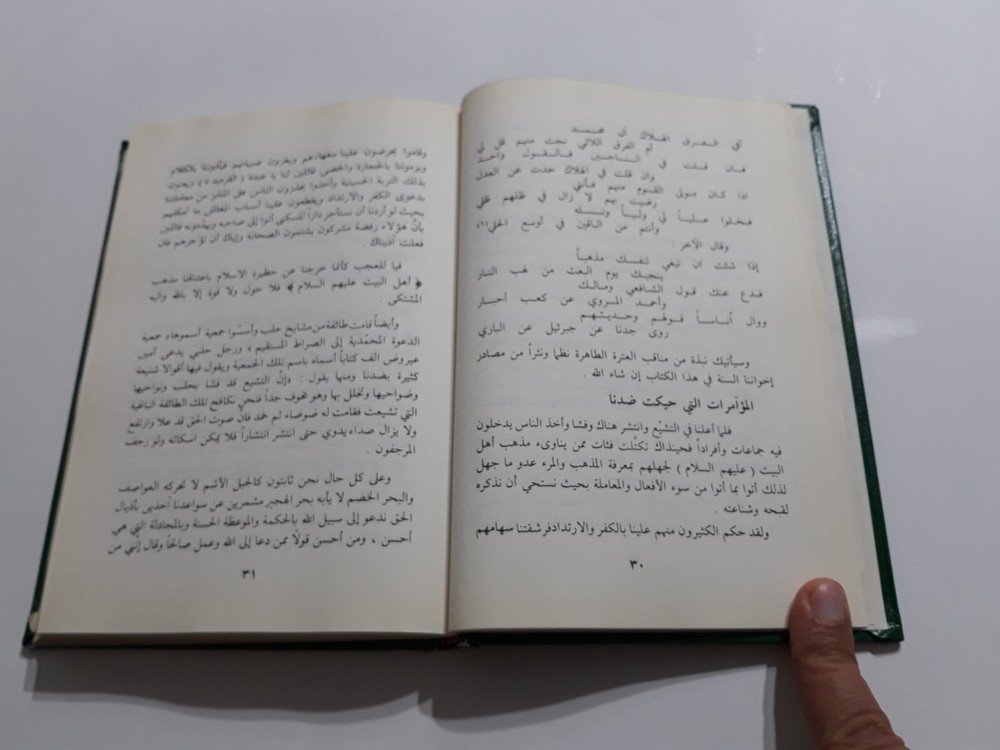 أفي الفرق الهلاك آل محمد
أم الفرق اللاتي نجت منهم قل لي
فان قلت في الناجين فالقول واحد
وان قلت في الهلاك حدت عن العدل
اذا كان مولى القوم منهم فأنني
رضيت بهم لا زال في ظلهم ظلي
فخلوا علياً لي ولياً ونسله
وأنتم من الباقين في أوسع الحل(١)
وقال الآخر :
إذا شئت ان تبغي لنفسك مذهباً
ينجيك يوم البعث من لهب النار
فدع عنك قول الشافعي ومالك
وأحمد المروي عن كعب أحبار
ووال أناساً قولهم وحديثهم
روى جدنا عن جبرئيل عن الباري
وسيأتيك نبذة من مناقب العترة الطاهرة نظما ونثراً من مصادر
إخواننا السنة في هذا الكتاب إن شاء الله .
المؤآمرات التي حيكت ضدنا
فلما أعلنا في التشيّع وانتشر هناك وفشا وأخذ الناس يدخلون
فيه جماعات وأفراداً فحينذاك تكتّلت فئات ممن يناوىء مذهب أهل
البيت ( عليهم السلام ) لجهلهم بمعرفة المذهب والمرء عدو ما جهل
لذلك أتوا بما أتوا من سوء الأفعال والمعاملة بحيث نستحي أن نذكره
لقبحه وشناعته .
ولقد حكم الكثيرون منهم علينا بالكفر والارتداد فرشقتنا سهامهم
٣٠
وقاموا يحرضون علينا سفهاءهم ويغرون صبيانهم فيأذوننا بالكلام
ويرموننا بالحجارة والحصى قائلين لنا يا عبدة ( القرميد ) ويعنون
بذلك التربة الحسينية وأخذوا يحذرون الناس على المنابر من معاملتنا
بدعوى الكفر والارتداد ويقطعون علينا أسباب المعاش ما أمكنهم
بحيث لو أردنا أن نستأجر داراً للسكنى أتوا إلى صاحبه ويهددونه قائلين
بأنّ هؤلاء رفضة مشركون يشتمون الصحابة وإياك أن تؤجرهم فان
فعلت آذيناك .
فيا للعجب كأنما خرجنا عن حظيرة الاسلام باعتناقنا مذهب
﴿ أهل البيت عليهم السلام ﴾ فلا حول ولا قوة إلا بالله واليه
المشتكى .
وأيضاً قامت طائفة من مشايخ حلب وأسسوا جمعية أسموها « جمعية
الدعوة المحمّدية إلى الصراط المستقيم » ورجل حلبي يدعى أمين
عيروض الف كتاباً أسماه باسم تلك الجمعية ويقول فيها أقوالا شنيعة
كثيرة بضدنا ومنها يقول : « إنّ التشيع قد فشا بحلب ونواحيها
وضواحيها وتخلل بها وهو مخوف جداً فنحن نكافح تلك الطائفة الباغية
التي تشيعت فقامت له ضوضاء ثم خمد فأن صوت الحق قد علا وارتفع
ولا يزال صداه يدوي حتى انتشر انتشاراً فلا يمكن اسكاته ولو رجف
المرجفون .
وعلى كل حال نحن ثابتون كالجبل الأشم لا تحركه العواصف
والبحر الخضم لا يأبه بحر الهجير مشمرين عن سواعدنا آخذين بأذيال
الحق ندعو إلى سبيل الله بالحكمة والموعظة الحسنة وبالمجادلة التي هي
أحسن ، ومن أحسن قولاً ممن دعا إلى الله وعمل صالحاً وقال إنني من
٣١